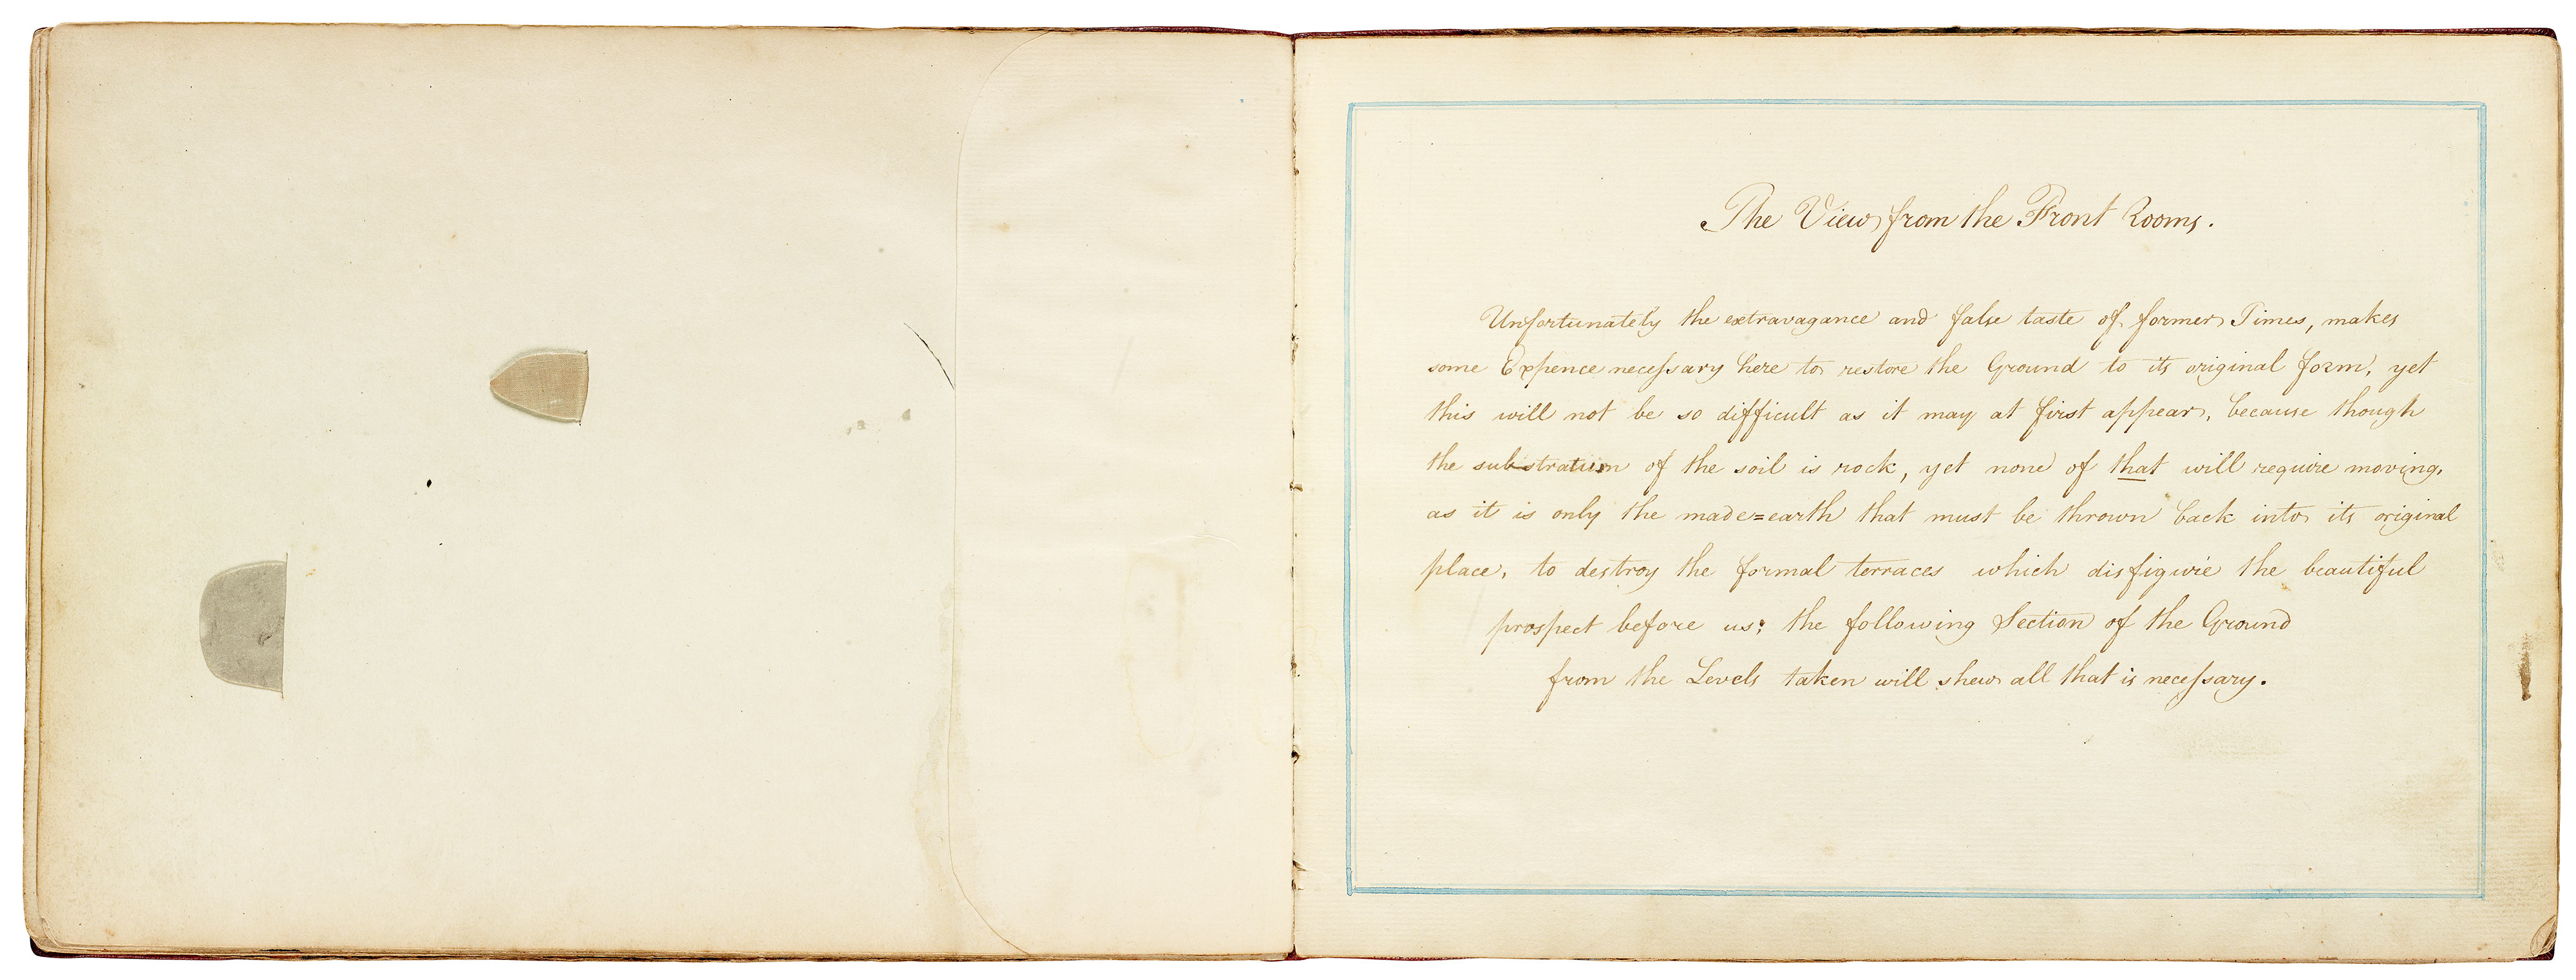 The View from the Front Rooms.
Unfortunately the extravagance and false taste of former Times, makes
some Expence necessary here to restore the Ground to its original form, yet
this will not be so difficult as it may at first appear, because though
the substratum of the soil is rock, yet none of that will require moving,
as it is only the made=earth that must be thrown back into its original
place, to destroy the formal terraces which disfigure the beautiful
prospect before us; the following Section of the Ground
from the Levels taken will shew all that is necessary.